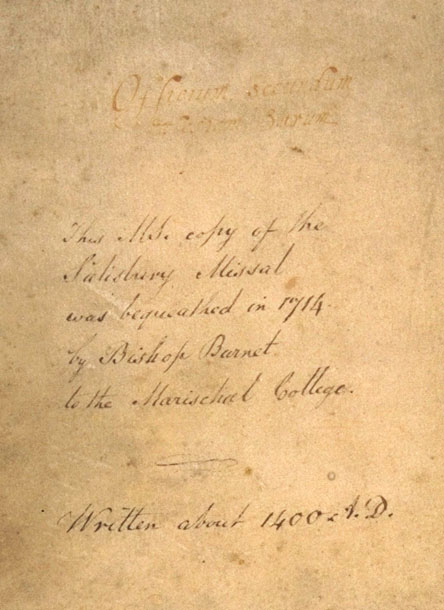 Officium secundum
Sarum
This MS. copy of the
Salisbury Missal
was bequeathed in 1714.
by Bishop Burnet
to the Marischal College.
Written about 1400 A.D.